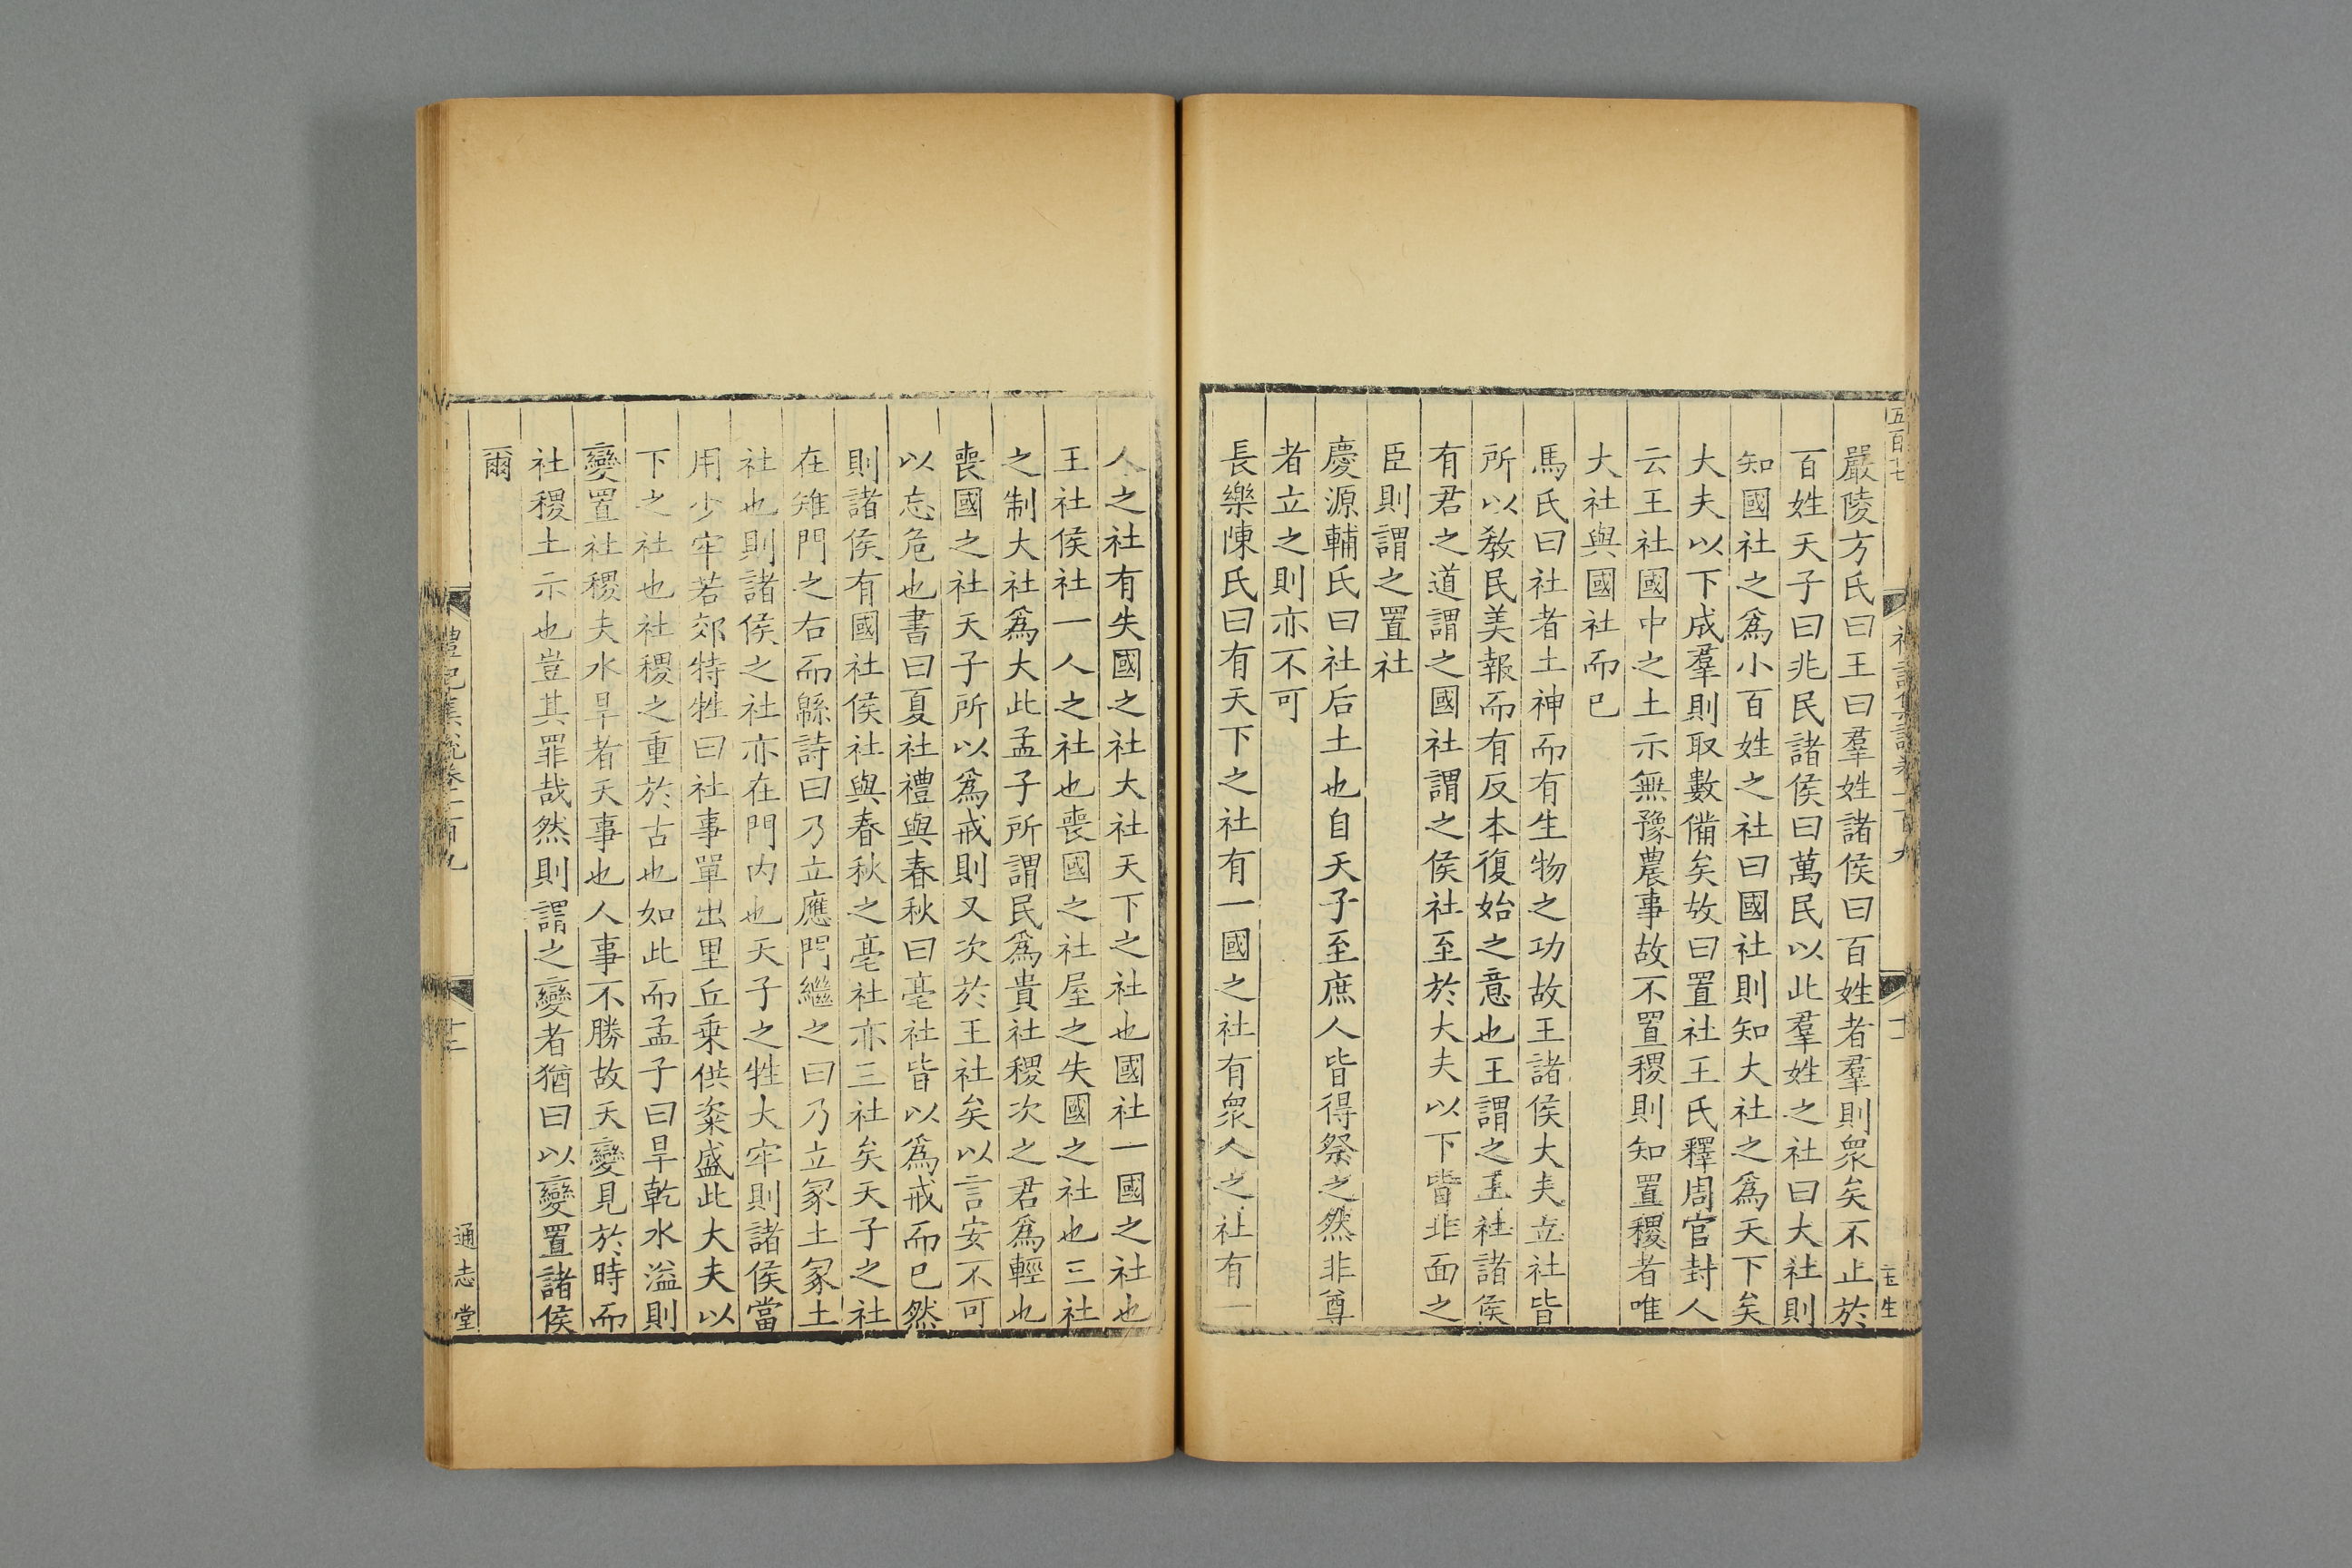 嚴陵方氏曰王曰羣姓諸侯曰百姓者羣則衆矣不止於
百姓天子曰兆民諸侯曰萬民以此羣姓之社曰大社則
知國社之爲小百姓之社曰國社則知大社之爲天下矣
大夫以下成羣則取數備矣故曰置社王氏釋周官封人
云王社國中之土示無豫農事故不置稷則知置稷者唯
大社與國社而已
馬氏曰社者土神而有生物之功故王諸侯大夫立社皆
所以教民美報而有反本復始之意也王謂之王社諸侯
有君之道謂之國社謂之侯社至於大夫以下皆北面之
臣則謂之置社
慶源輔氏曰社后土也自天子至庶人皆得祭之然非尊
者立之則亦不可
長樂陳氏曰有天下之社有一國之社有衆人之社有一
人之社有失國之社大社天下之社也國社一國之社也
王社侯社一人之社也喪國之社屋之失國之社也三社
之制大社爲大此孟子所謂民爲貴社稷次之君爲輕也
喪國之社天子所以爲戒則又次於王社矣以言安不可
以忘危也書曰夏社禮與春秋曰亳社皆以爲戒而已然
則諸侯有國社侯社與春秋之亳社亦三社矣天子之社
在雉門之右而緜詩曰乃立應門繼之曰乃立冢土冢土
社也則諸侯之社亦在門内也天子之牲大牢則諸侯當
用少牢若郊特牲曰社事單出里丘乗供粢盛此大夫以
下之社也社稷之重於古也如此而孟子曰旱乾水溢則
變置社稷夫水旱者天事也人事不勝故天變見於時而
社稷土示也豈其罪哉然則謂之變者猶曰以變置諸侯
爾
禮記集說卷一百九
通志堂